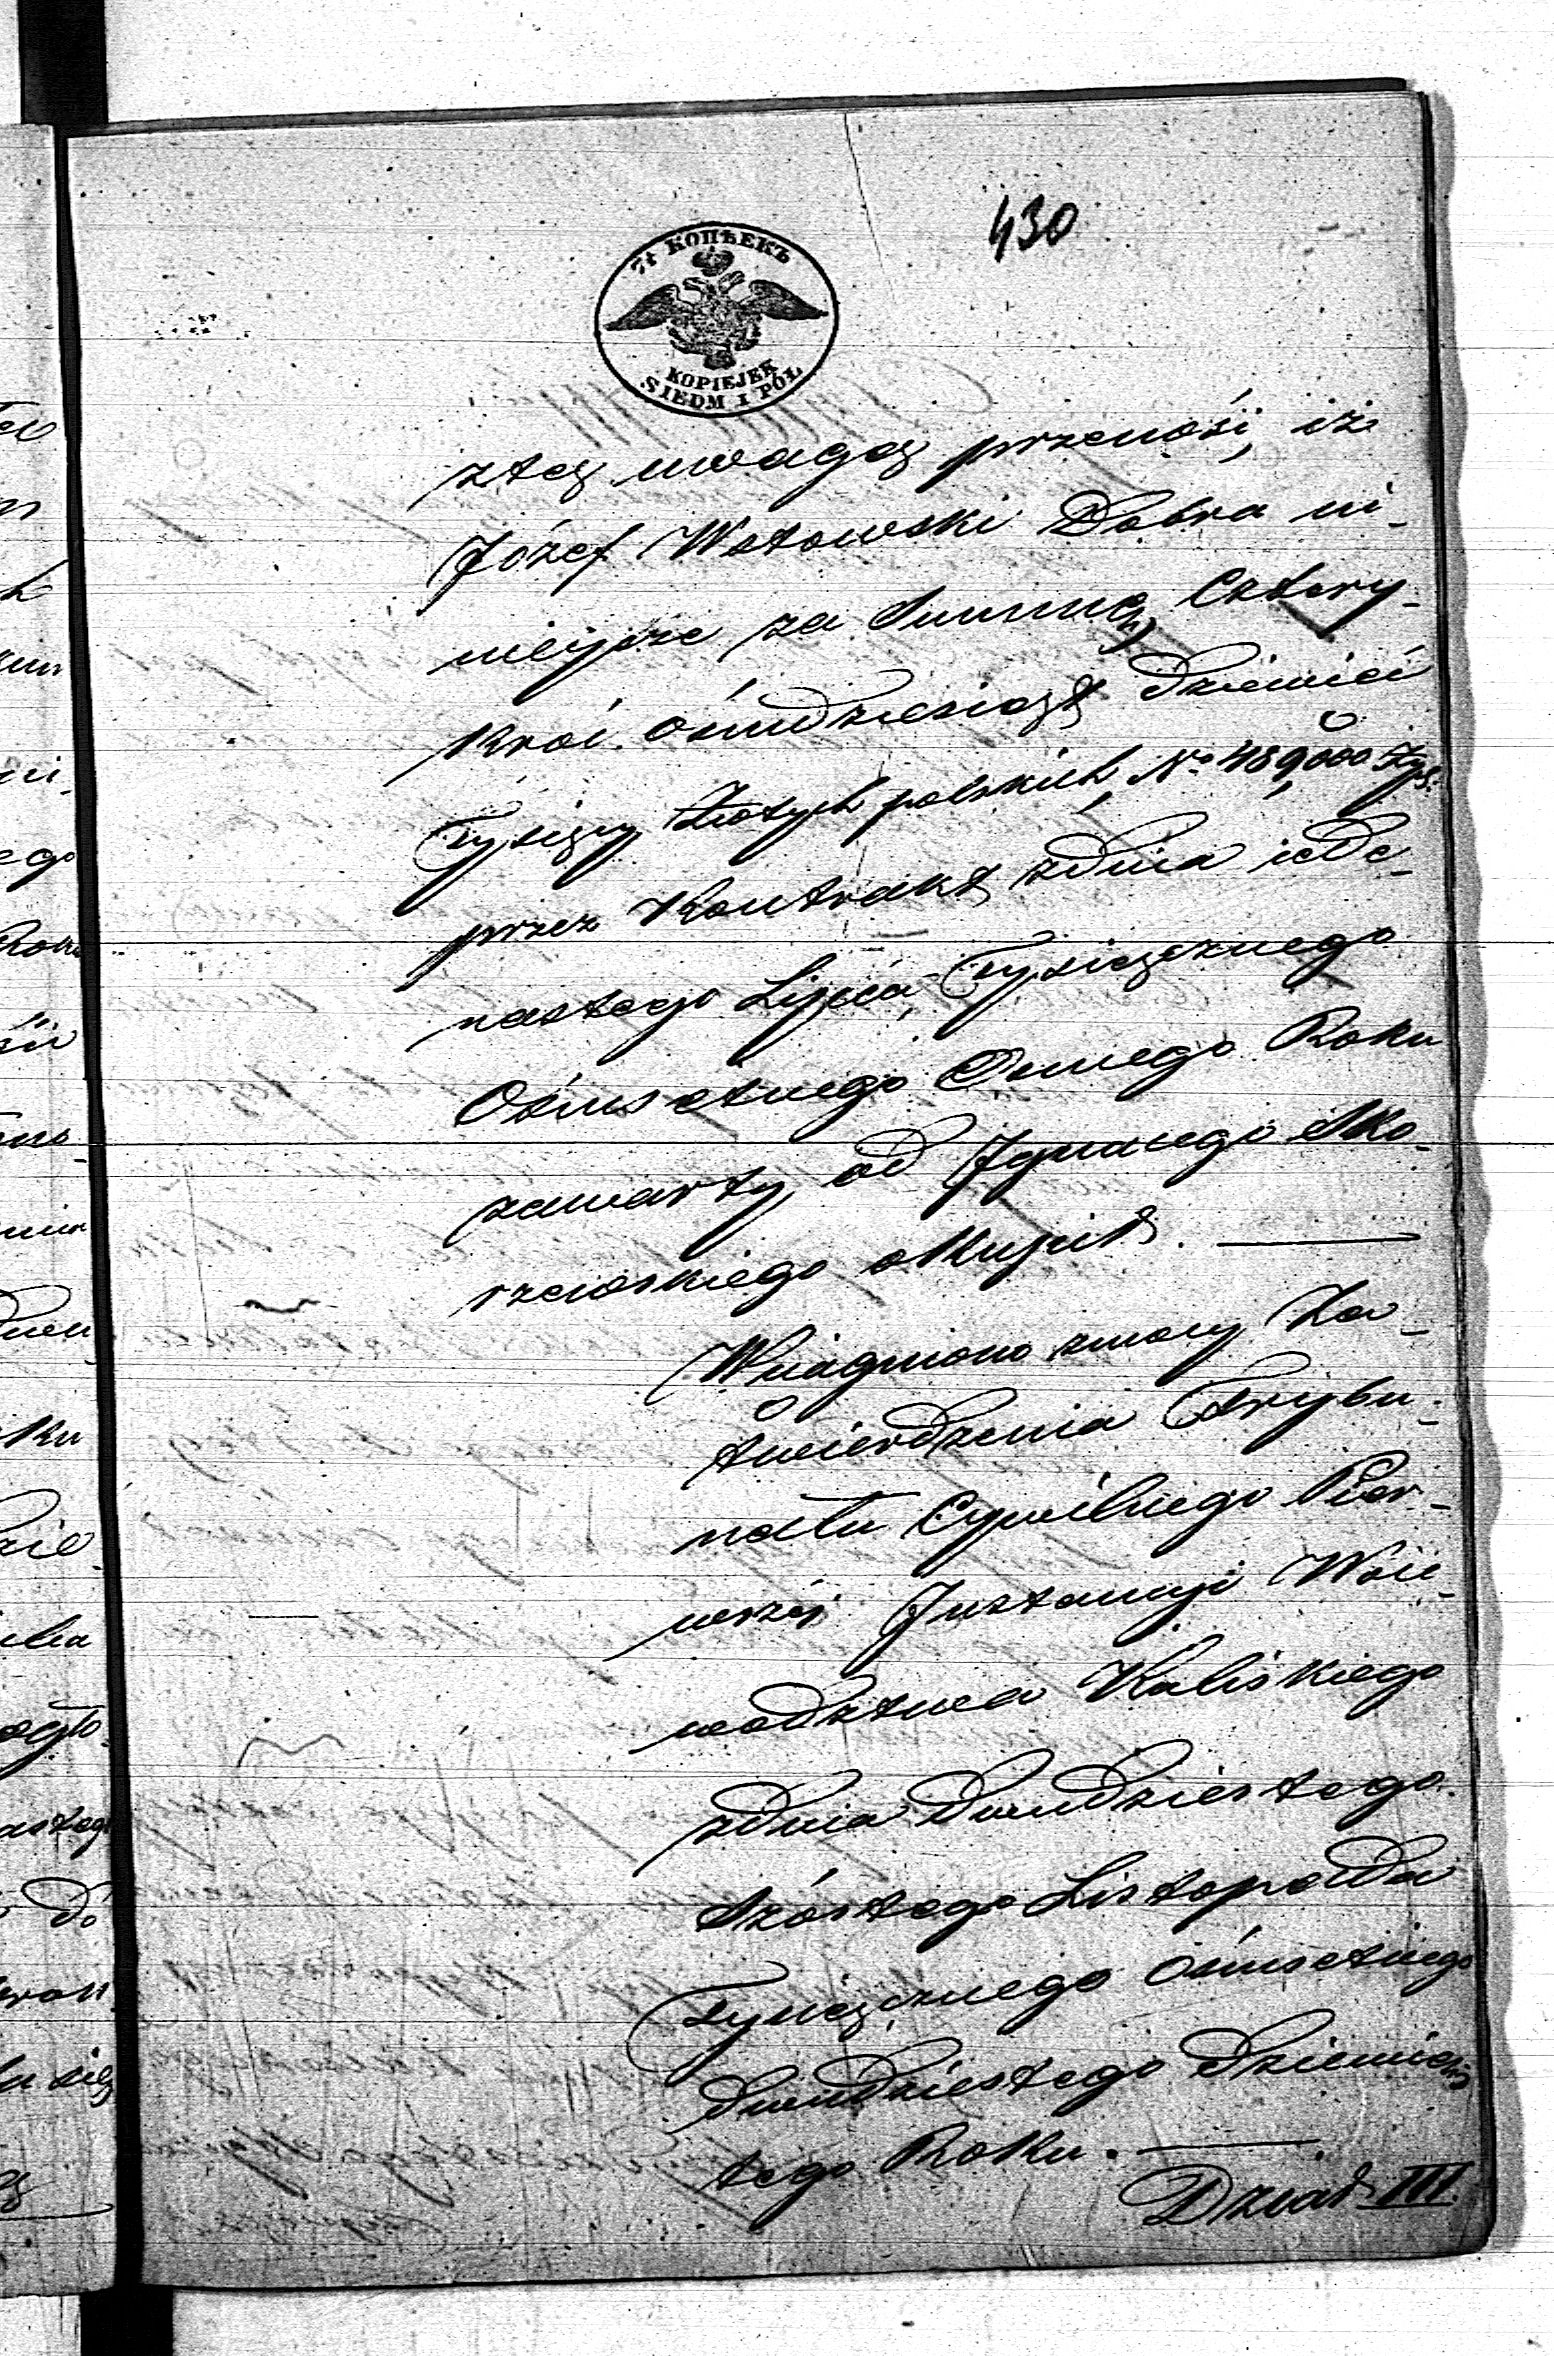 430
7½ КОПѢЕКЪ
KOPIEJEK
SIEDM I PÓŁ
z tą uwagą przenosi, iż
Józef Wstowski Dobra ni-
nieysze za Summę Cztery-
kroć ośmdziesiąt Dziewięć
Tysięcy Złotych polskich, No 489,000 Zł
przez Kontrakt z dnia iede-
nastego Lipca Tysiącznego
Ośmsetnego Roku
zawarty, od Ignacego Sko-
rzewskiego okupił.
Wciągniono z mocy Za-
twierdzenia Trybu-
nału Cywilnego Pier-
wszéj Instancyi Woie-
wodztwa Kaliskiego
z dnia dwudziestego
szóstego Listopada
Tysiącznego ośmsetnego
dwudziestego dziewią-
tego Roku.
Dział III.